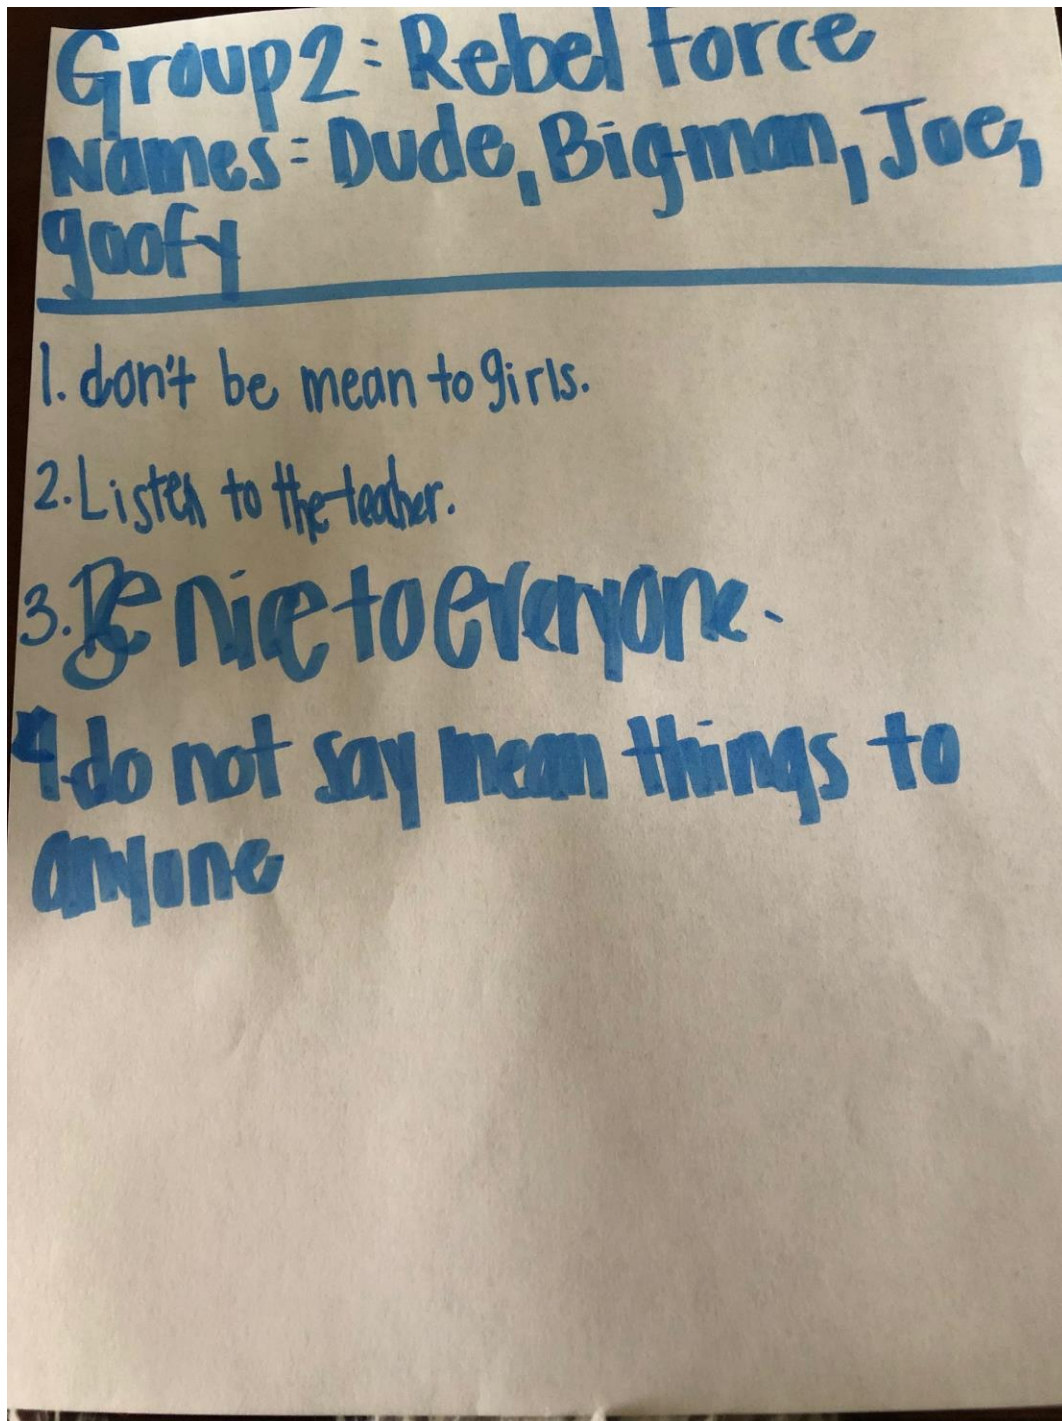 Group2: Rebel Force
Names: Dude, Bigman, Joe,
goofy
1. don't be mean to girls.
2. Listen to the teacher.
3. Be nice to everyone.
4. do not say mean things to
anyone